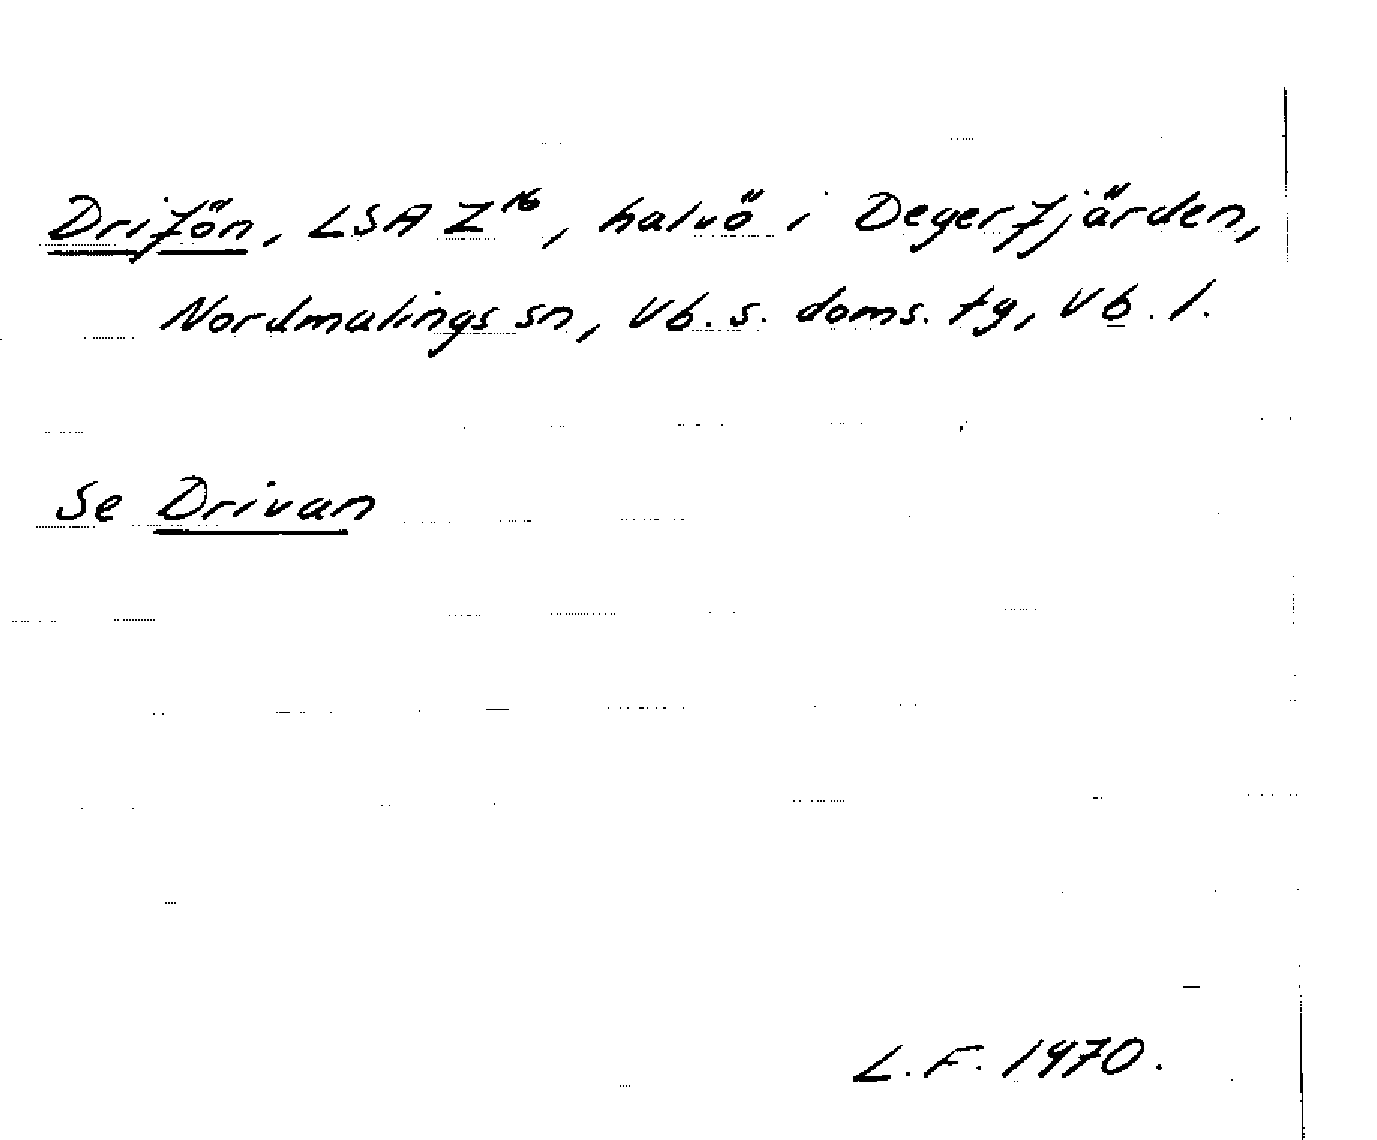 Drifön, LSA Z¹⁶, halvö i Degerfjärden,
Nordmalings sn, Vb. s. doms. tg, Vb. l.
Se Drivan
L.F. 1970.